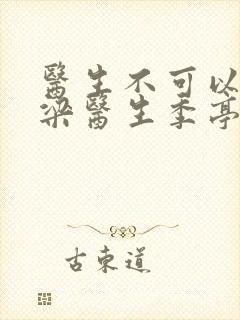 醫生不可以
梁醫生季亭
古東道